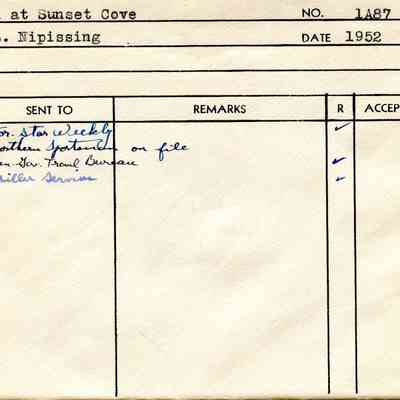 at Sunset Cove NO. 1A87
. Nipissing DATE 1952
SENT TO REMARKS R ACCEP
or. Star Weekly ✓
orthern Sportsman on file
en. Gov. Travel Bureau ✓
iller Services ✓